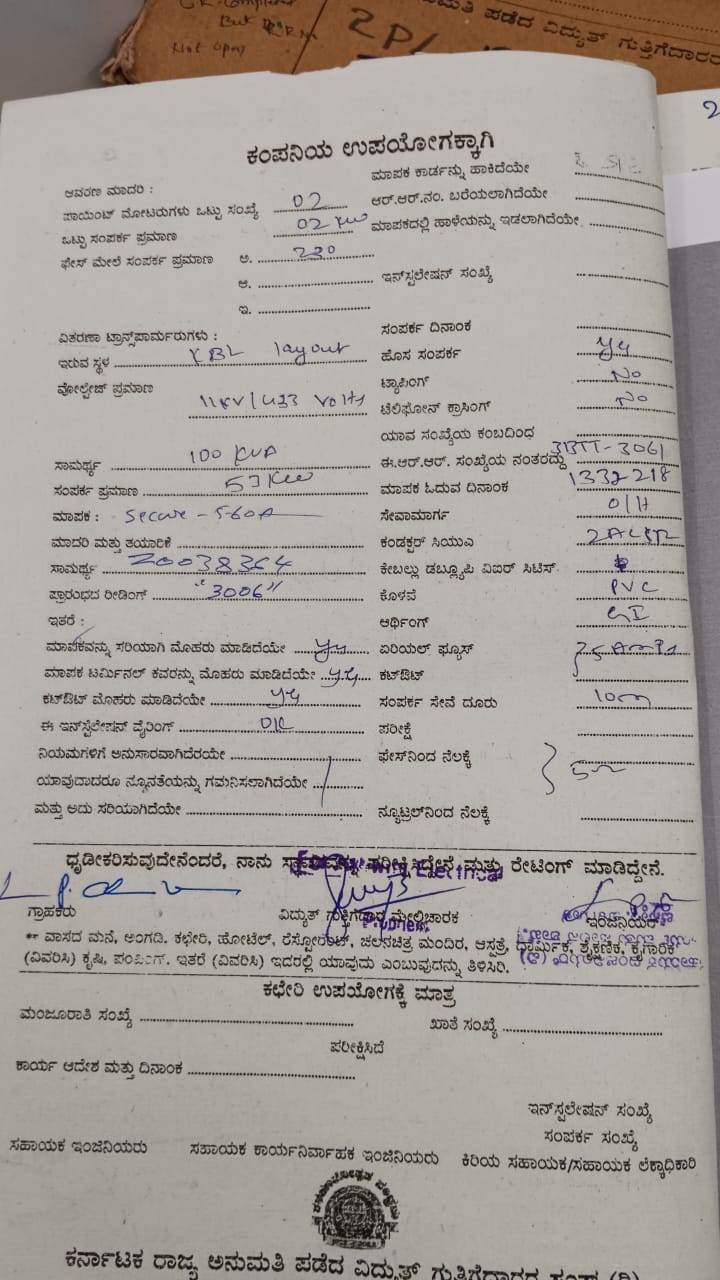 Not open
2P/
ಮತಿ ಪಡೆದ ವಿದ್ಯುತ್ ಗುತ್ತಿಗೆದಾರರ
2
ಕಂಪನಿಯ ಉಪಯೋಗಕ್ಕಾಗಿ
ಆವರಣ ಮಾದರಿ : ಮಾಪಕ ಕಾರ್ಡನ್ನು ಹಾಕಿದೆಯೇ
ಪಾಯಿಂಟ್ ಮೋಟರುಗಳು ಒಟ್ಟು ಸಂಖ್ಯೆ 02 ಆರ್.ಆರ್.ನಂ. ಬರೆಯಲಾಗಿದೆಯೇ
ಒಟ್ಟು ಸಂಪರ್ಕ ಪ್ರಮಾಣ 02 KW ಮಾಪಕದಲ್ಲಿ ಹಾಳೆಯನ್ನು ಇಡಲಾಗಿದೆಯೇ
ಫೇಸ್ ಮೇಲೆ ಸಂಪರ್ಕ ಪ್ರಮಾಣ ಅ. 230
ಆ. ಇನ್‌ಸ್ಟಲೇಷನ್ ಸಂಖ್ಯೆ
ಇ.
ವಿತರಣಾ ಟ್ರಾನ್ಸ್‌ಪಾರ್ಮರುಗಳು : ಸಂಪರ್ಕ ದಿನಾಂಕ
ಇರುವ ಸ್ಥಳ KBL layout ಹೊಸ ಸಂಪರ್ಕ yes
ವೋಲ್ಟೇಜ್ ಪ್ರಮಾಣ 11KV/433 Volts ಟ್ಯಾಪಿಂಗ್ No
ಟೆಲಿಫೋನ್ ಕ್ರಾಸಿಂಗ್ No
ಯಾವ ಸಂಖ್ಯೆಯ ಕಂಬದಿಂಧ
ಸಾಮರ್ಥ್ಯ 100 KVA ಈ.ಆರ್.ಆರ್. ಸಂಖ್ಯೆಯ ನಂತರದ್ದು 3BTT-3061
ಸಂಪರ್ಕ ಪ್ರಮಾಣ 53 KW ಮಾಪಕ ಓದುವ ದಿನಾಂಕ 1332218
ಮಾಪಕ : Secure - 5-60A ಸೇವಾಮಾರ್ಗ O/H
ಮಾದರಿ ಮತ್ತು ತಯಾರಿಕೆ ಕಂಡಕ್ಟರ್ ಸಿಯುಎ
ಸಾಮರ್ಥ್ಯ 20038364 ಕೇಬಲ್ಲು ಡಬ್ಲ್ಯೂಪಿ ವಿಐರ್ ಸಿಟಿಸ್
ಪ್ರಾರಂಭದ ರೀಡಿಂಗ್ "3006" ಕೊಳವೆ PVC
ಇತರೆ : ಆರ್ಥಿಂಗ್ GI
ಮಾಪಕವನ್ನು ಸರಿಯಾಗಿ ಮೊಹರು ಮಾಡಿದೆಯೇ yes ಏರಿಯಲ್ ಫ್ಯೂಸ್ 25 Amps
ಮಾಪಕ ಟರ್ಮಿನಲ್ ಕವರನ್ನು ಮೊಹರು ಮಾಡಿದೆಯೇ yes ಕಟ್‌ಔಟ್
ಕಟ್‌ಔಟ್ ಮೊಹರು ಮಾಡಿದೆಯೇ yes ಸಂಪರ್ಕ ಸೇವೆ ದೂರು 10m
ಈ ಇನ್‌ಸ್ಟಲೇಷನ್ ವೈರಿಂಗ್ OK ಪರೀಕ್ಷೆ
ನಿಯಮಗಳಿಗೆ ಅನುಸಾರವಾಗಿದೆರೆಯೇ ಫೇಸ್‌ನಿಂದ ನೆಲಕ್ಕೆ
ಯಾವುದಾದರೂ ನ್ಯೂನತೆಯನ್ನು ಗಮನಿಸಲಾಗಿದೆಯೇ 5Ω
ಮತ್ತು ಅದು ಸರಿಯಾಗಿದೆಯೇ ನ್ಯೂಟ್ರಲ್‌ನಿಂದ ನೆಲಕ್ಕೆ
ಧೃಡೀಕರಿಸುವುದೇನೆಂದರೆ, ನಾನು ಪರೀಕ್ಷಿಸಿದ್ದೇನೆ ಮತ್ತು ರೇಟಿಂಗ್ ಮಾಡಿದ್ದೇನೆ.
Electrical
ಗ್ರಾಹಕರು ವಿದ್ಯುತ್ ಗುತ್ತಿಗೆದಾರ ಮೇಲ್ವಿಚಾರಕ ಇಂಜಿನಿಯರ್
** ವಾಸದ ಮನೆ, ಅಂಗಡಿ. ಕಛೇರಿ, ಹೋಟೆಲ್, ರೆಸ್ಟೋರೆಂಟ್, ಚಲನಚಿತ್ರ ಮಂದಿರ, ಆಸ್ಪತ್ರೆ, ಧಾರ್ಮಿಕ, ಶೈಕ್ಷಣಿಕ, ಕೈಗಾರಿಕೆ
(ವಿವರಿಸಿ) ಕೃಷಿ, ಪಂಪಿಂಗ್. ಇತರೆ (ವಿವರಿಸಿ) ಇದರಲ್ಲಿ ಯಾವುದು ಎಂಬುವುದನ್ನು ತಿಳಿಸಿರಿ.
ಕಛೇರಿ ಉಪಯೋಗಕ್ಕೆ ಮಾತ್ರ
ಮಂಜೂರಾತಿ ಸಂಖ್ಯೆ ಖಾತೆ ಸಂಖ್ಯೆ
ಪರೀಕ್ಷಿಸಿದೆ
ಕಾರ್ಯ ಆದೇಶ ಮತ್ತು ದಿನಾಂಕ
ಇನ್‌ಸ್ಟಲೇಷನ್ ಸಂಖ್ಯೆ
ಸಂಪರ್ಕ ಸಂಖ್ಯೆ
ಸಹಾಯಕ ಇಂಜಿನಿಯರು ಸಹಾಯಕ ಕಾರ್ಯನಿರ್ವಾಹಕ ಇಂಜಿನಿಯರು ಕಿರಿಯ ಸಹಾಯಕ/ಸಹಾಯಕ ಲೆಕ್ಕಾಧಿಕಾರಿ
ಕರ್ನಾಟಕ ರಾಜ್ಯ ಅನುಮತಿ ಪಡೆದ ವಿದ್ಯುತ್ ಗುತ್ತಿಗೆದಾರರ ಸಂಘ (ರಿ)